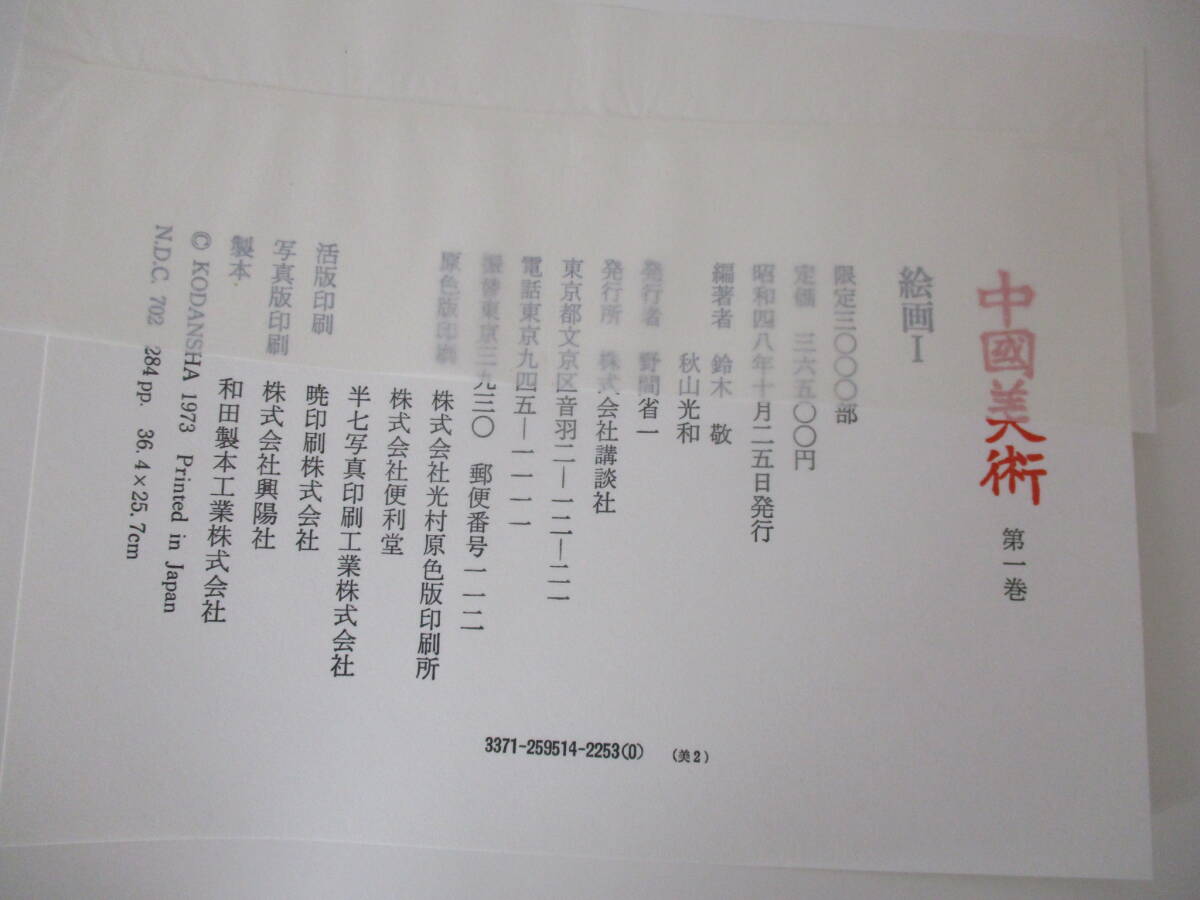 中國美術 第一巻
絵画Ⅰ
限定三〇〇〇部
定価 三六五〇〇円
昭和四八年十月二五日発行
編著者 鈴木 敬
秋山光和
発行者 野間省一
発行所 株式会社講談社
東京都文京区音羽二―一二―二一
電話東京九四五―一一一一
振替東京三九三〇 郵便番号一一二
原色版印刷 株式会社光村原色版印刷所
株式会社便利堂
半七写真印刷工業株式会社
活版印刷 暁印刷株式会社
写真版印刷 株式会社興陽社
製本 和田製本工業株式会社
© KODANSHA 1973 Printed in Japan
N.D.C. 702 284 pp. 36.4×25.7cm
3371-259514-2253(0) (美2)